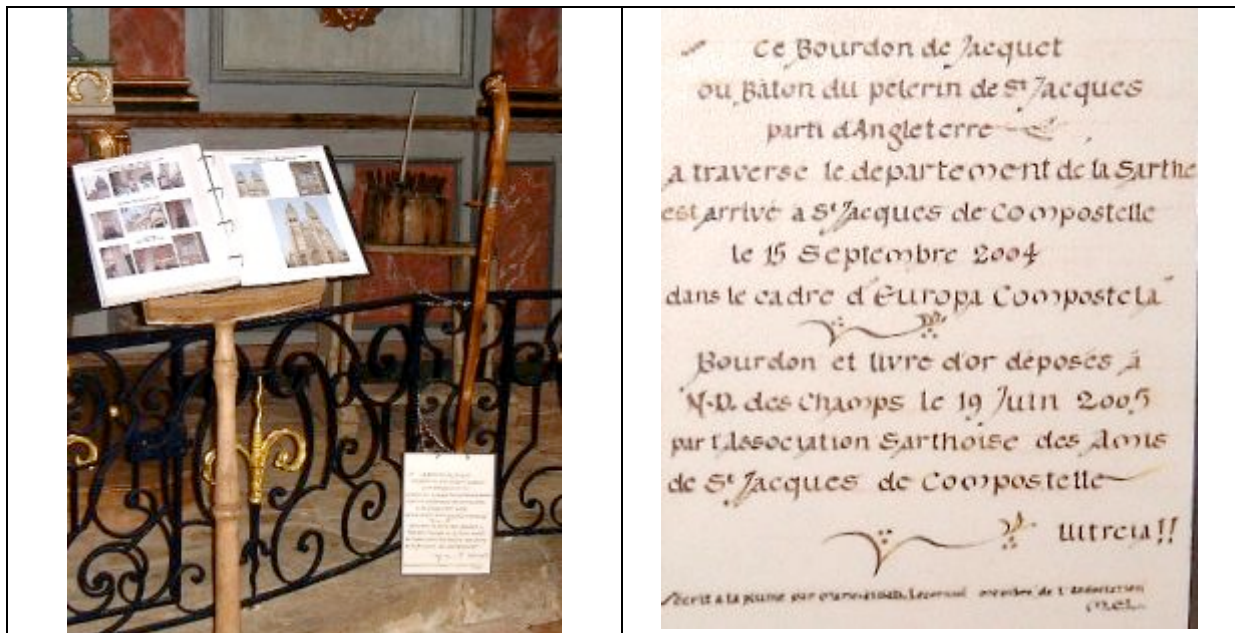 Ce Bourdon de Jacquet
ou Bâton du pelerin de St Jacques
parti d'Angleterre
a traverse le departement de la Sarthe
est arrivé a St Jacques de Compostelle
le 15 Septembre 2004
dans le cadre d'Europa Compostela
Bourdon et livre d'or déposés à
N.D. des Champs le 19 Juin 2005
par l'Association Sarthoise des Amis
de St Jacques de Compostelle
Ultreia!!
Ecrit a la plume par membre de l'association